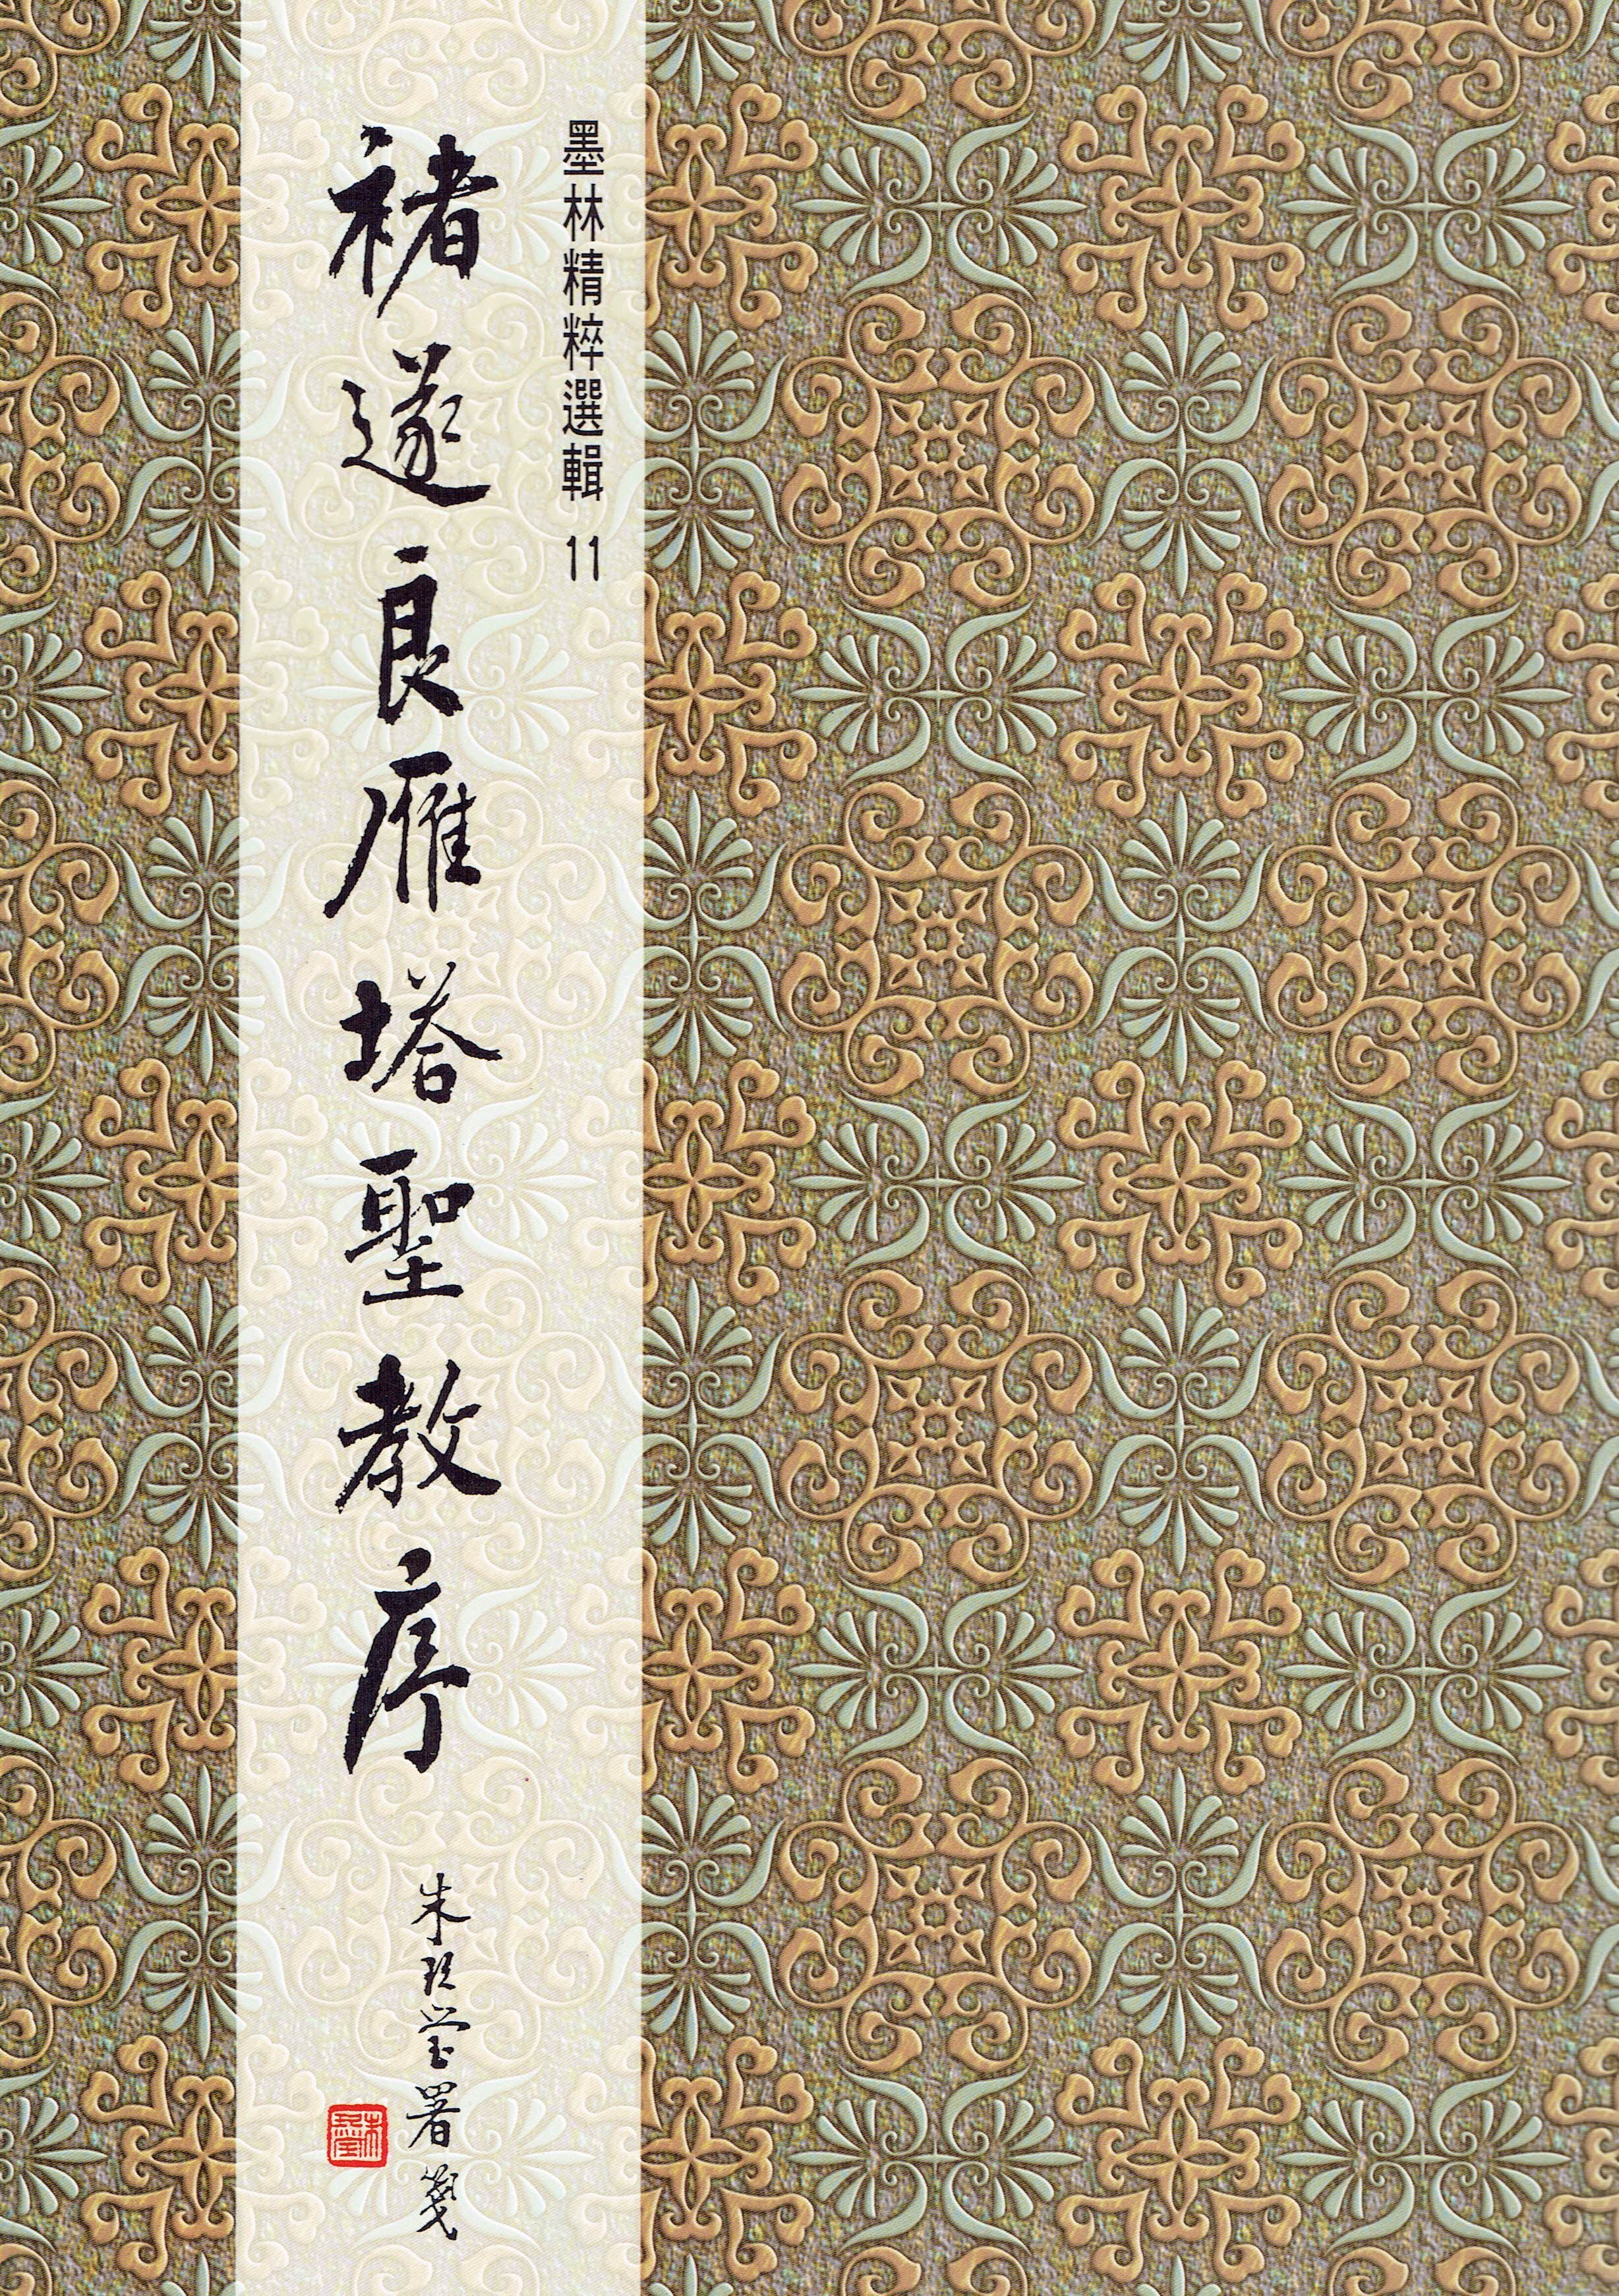 墨林精粹選輯 11
褚遂良雁塔聖教序
朱玖瑩署箋